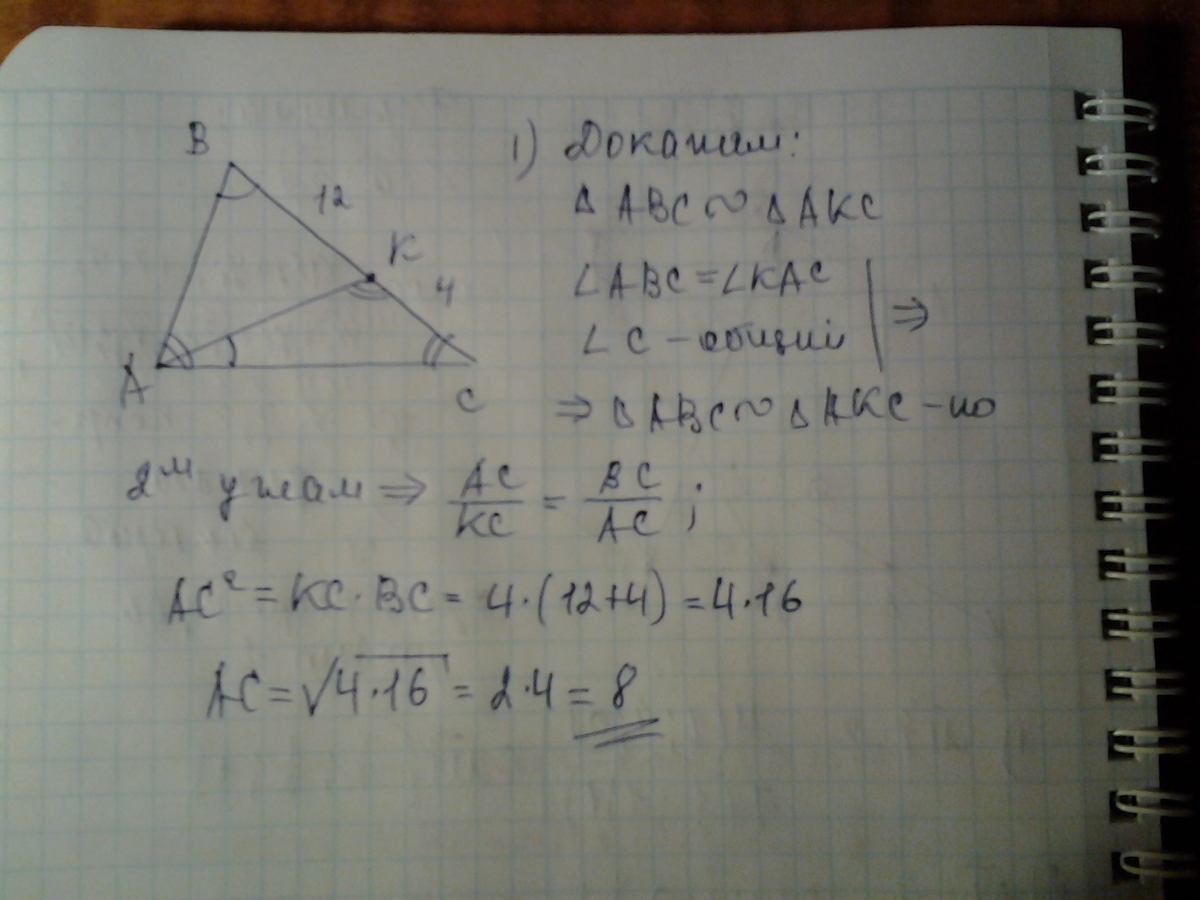 B
12
K
4
A
C
1) Докажем:
Δ ABC ∾ Δ AKC
∠ABC = ∠KAC
∠C - общий | ⇒
⇒ Δ ABC ∾ Δ AKC - по
2ᵐ углам ⇒ AC/KC = BC/AC ;
AC² = KC · BC = 4 · (12+4) = 4·16
AC = √4·16 = 2·4 = 8